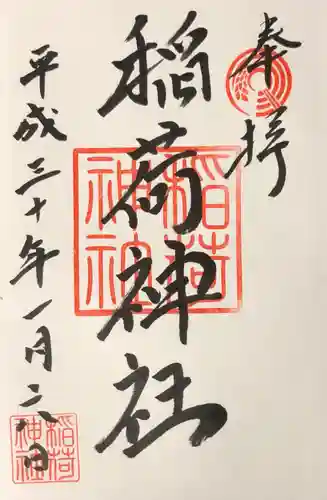 奉拝
稲荷神社
稲荷神社
平成三十年一月二八日
稲荷神社